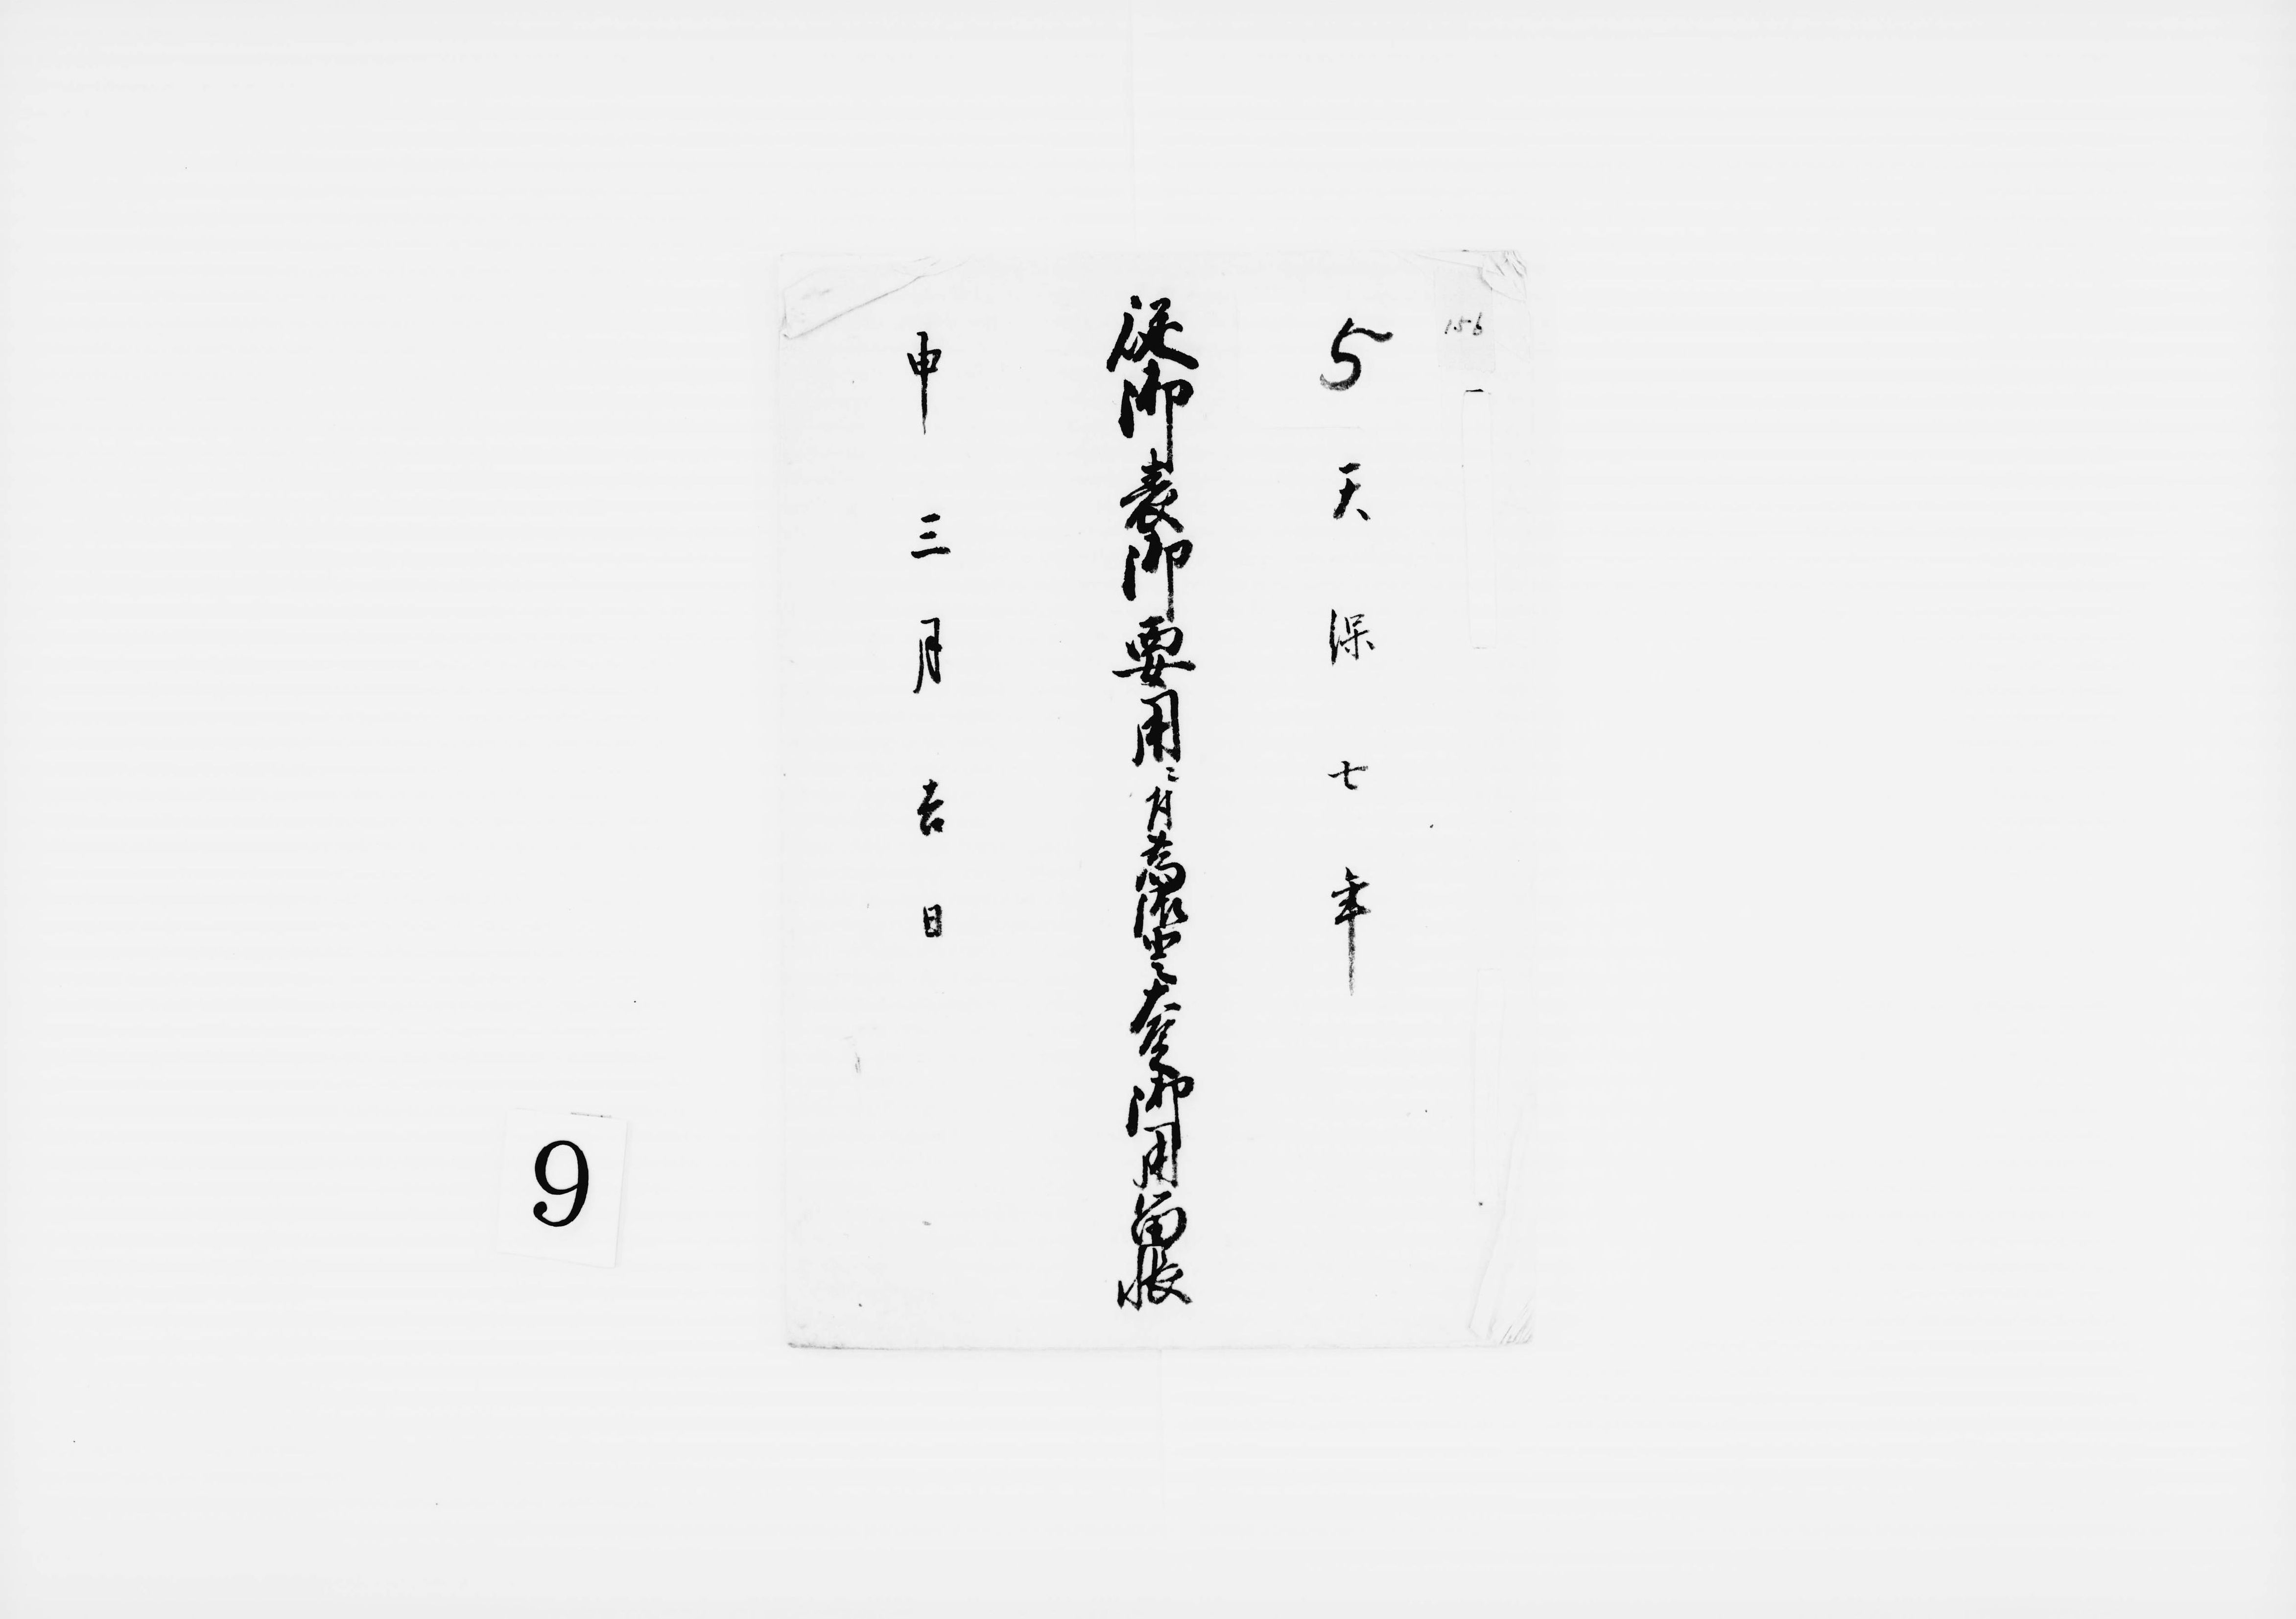 156
5
天保七年
従御表御要用ニ付為後世之大金御用留帳
申三月吉日
9